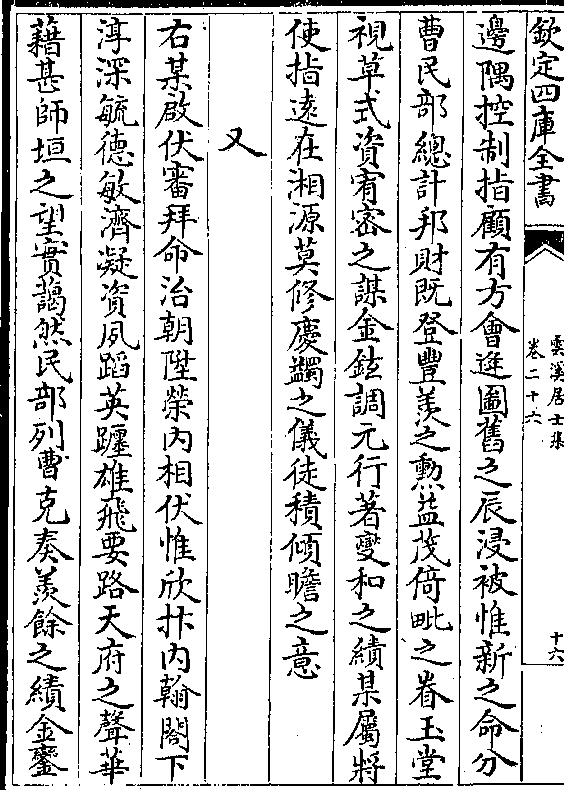 欽定四庫全書
雲溪居士集
卷二十六
十六
邊隅控制指顧有方會逰圗舊之辰浸被惟新之命分
曹民部總計邦財既登豐羨之勲益茂倚毗之眷玉堂
視草式資宥密之謀金鉉調元行著變和之績某屬將
使指遠在湘源莫修慶蠲之儀徒積傾瞻之意
又
右某啟伏審拜命治朝陞榮内相伏惟欣抃内翰閣下
淳深毓德敏濟凝資夙蹈英躔雄飛要路天府之聲華
藉甚師垣之望實藹然民部列曹克奏羨餘之績金鑾